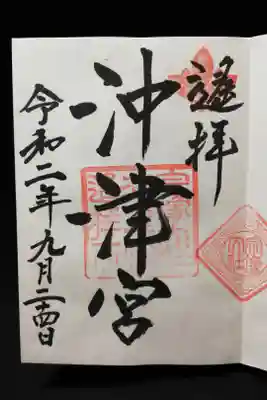 遥拝
沖津宮
令和二年九月二十四日